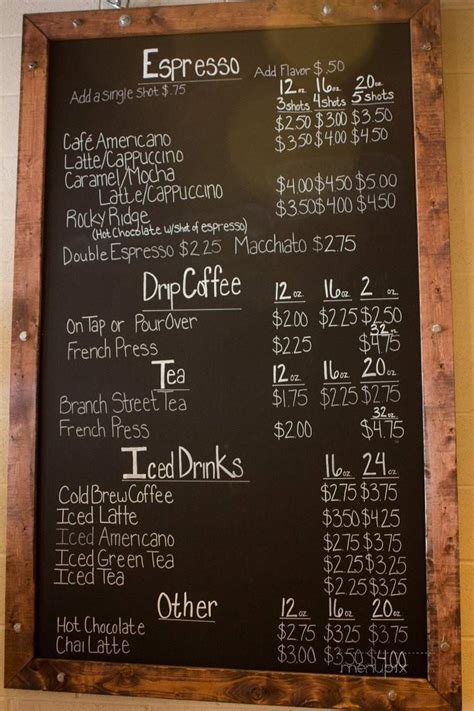 Espresso Add Flavor $.50
Add a single shot $.75
12 oz 16 oz 20 oz
3 shots 4 shots 5 shots
Café Americano $2.50 $3.00 $3.50
Latte/Cappuccino $3.50 $4.00 $4.50
Caramel/Mocha
Latte/Cappuccino $4.00 $4.50 $5.00
Rocky Ridge $3.50 $4.00 $4.50
(Hot Chocolate w/shot of espresso)
Double Espresso $2.25 Macchiato $2.75
Drip Coffee 12 oz. 16 oz. 2 oz.
On Tap or Pour Over $2.00 $2.25 $2.50
32 oz.
French Press $2.25 $4.75
Tea 12 oz. 16 oz. 20 oz.
Branch Street Tea $1.75 $2.25 $2.75
32 oz.
French Press $2.00 $4.75
Iced Drinks 16 oz. 24 oz.
Cold Brew Coffee $2.75 $3.75
Iced Latte $3.50 $4.25
Iced Americano $2.75 $3.75
Iced Green Tea $2.75 $3.75
Iced Tea $2.25 $3.25
Other 12 oz. 16 oz. 20 oz.
Hot Chocolate $2.75 $3.25 $3.75
Chai Latte $3.00 $3.50 $4.00
menupix